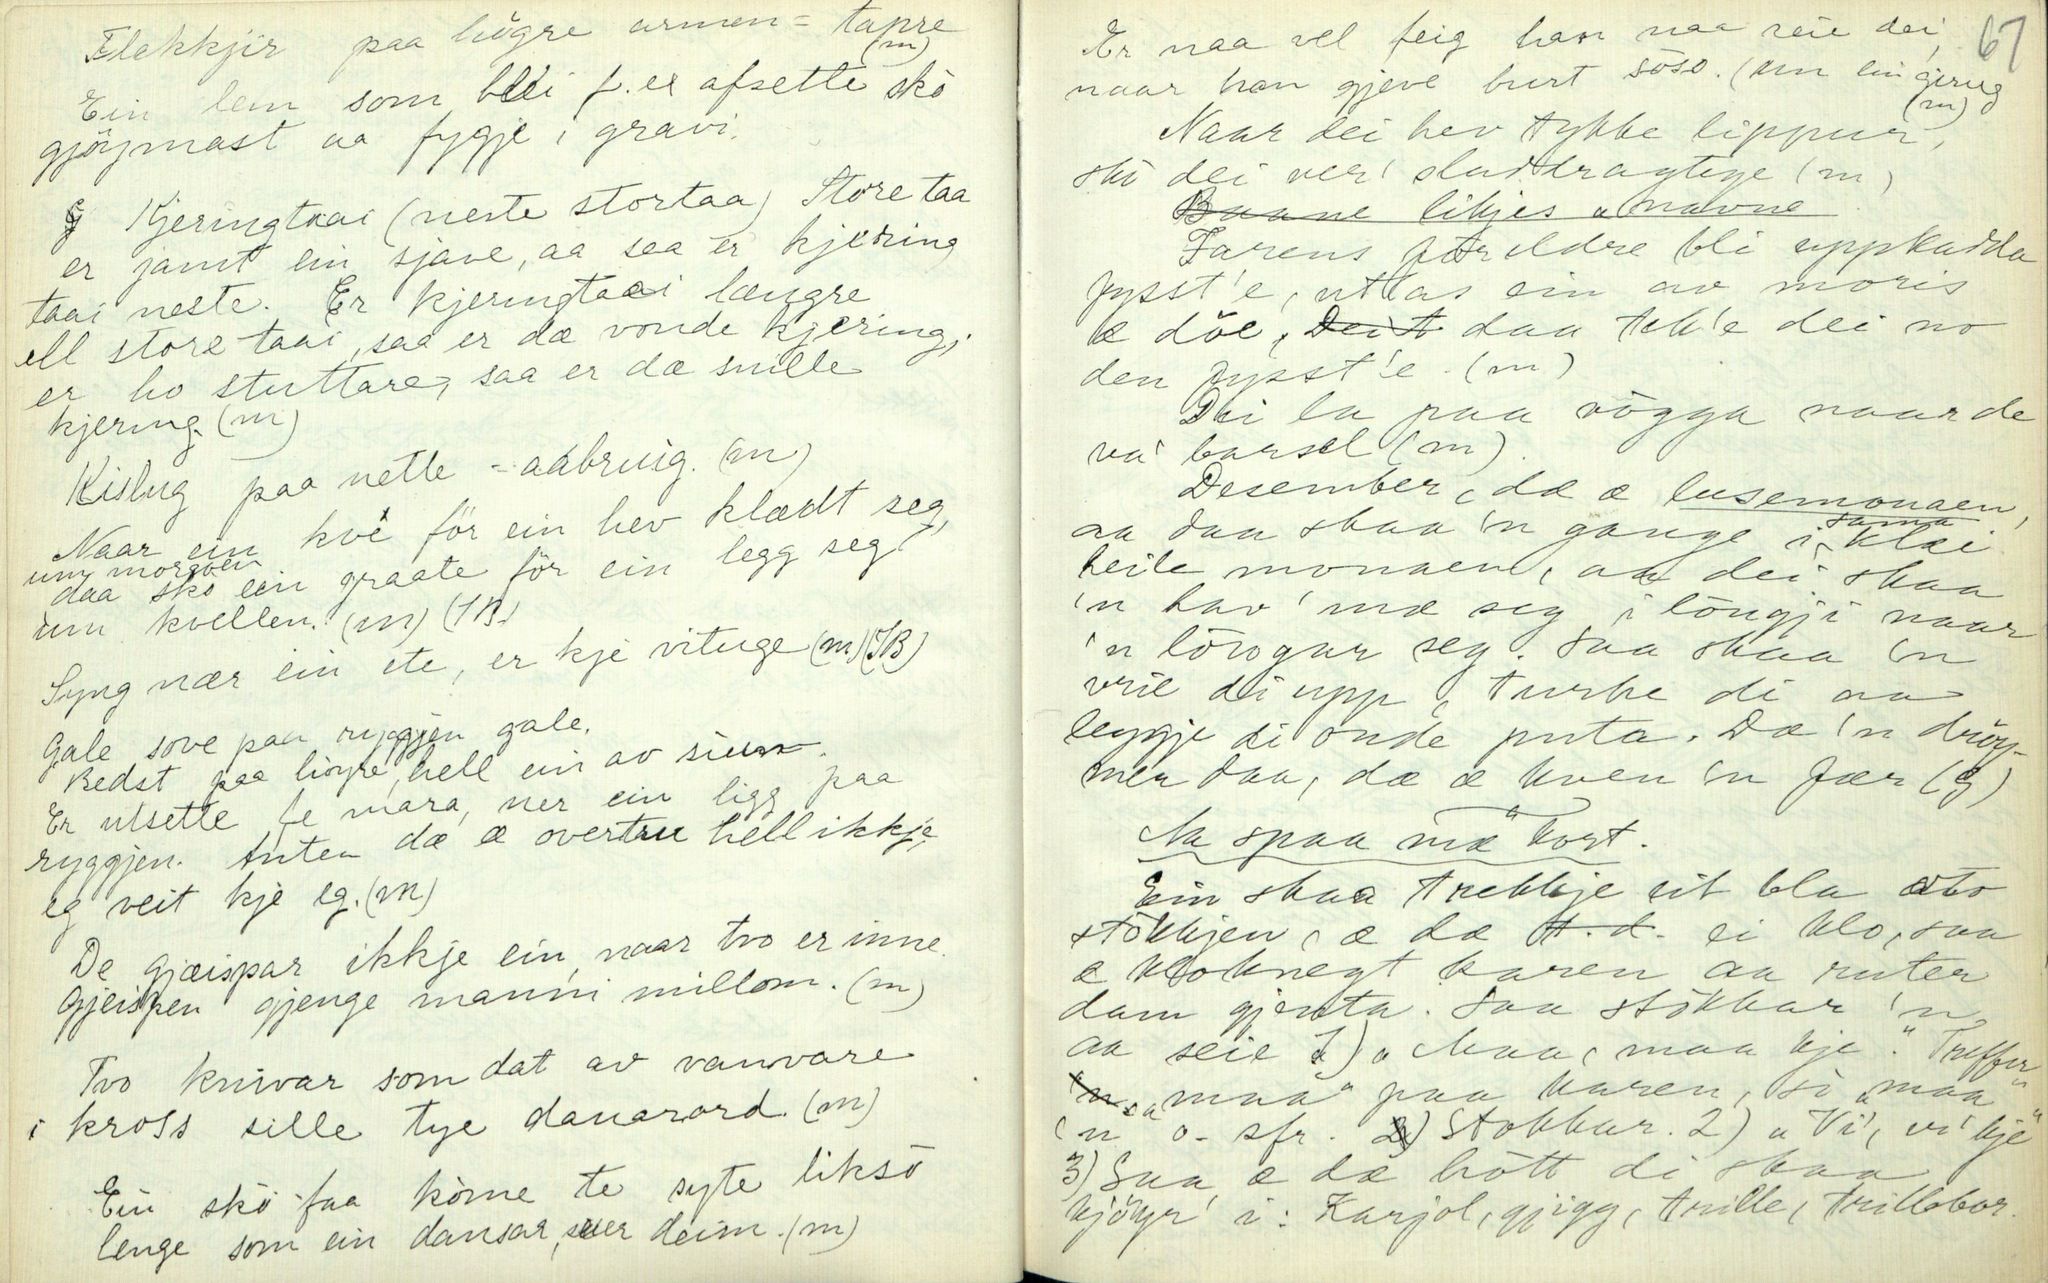 Flekkjir paa högre armen = tapre
(m)
Ein lem som bli f. ex afsette skò
gjöymast aa fygje i gravi.
Kjeringtaai (neste stortaa) Store taa
er jamt ein sjave, aa saa er kjering
taai neste. Er kjeringtaai længre
ell store taai, saa er dæ vonde kjering,
er ho stuttare, saa er dæ snille
kjering. (m)
Kislug paa nette = aabruig. (m)
Naar ein kvé för ein hev klædt seg,
um morgoen
daa skò ein graate för ein legg seg
um kvellen. (m) (TB)
Syng nær ein ete, er kje vituge (m) (TB)
Gale sove paa ryggjen gale.
Bedst paa högre, hell ein av sium.
Er utsette fe mara, ner ein ligg paa
ryggjen. Anten dæ æ overtru hell ikkje,
eg veit kje eg. (m)
De gjæispar ikkje ein, naar tvo er inne.
Gjeispen gjenge manni millom. (m)
Tvo knivar som dat av vanvare
i kross sille tye danarord. (m)
Ein skò faa kòme te syte liksò
lenge som ein dansar, seier deim. (m)
67
Er naa vel feig han naa seie dei,
naar han gjeve burt sòso. (um ein gjerug
(m)
Naar dei hev tykke lippur,
skò dei ver' sladdragtige (m)
Baane likjes a navne
Farens foreldre bli uppkadda
fysst'e, uttas ein av moris
æ döe, Deit daa tek'e dei no
den fysst'e. (m)
Dei la paa vögga naar de
va' barsel (m).
Desember, dæ æ lusemonaen,
aa daa skaa 'n gange i sama klæi
heile monaen, aa dei skaa
'n hav' mæ seg i löugji naar
'n löugar seg. Saa skaa 'n
vrie di upp, turke di aa
leggje di onde puta. Dæ 'n dröy-
mer daa, dæ æ kven 'n fær (g)
Aa spaa mæ kort.
Ein skaa trekkje eit bla ato
stökkjen, æ dæ t. d. ei klo, saa
æ kloknegt karen aa ruter
dam gjenta. Saa stòkkar 'n
aa seie 1) „Maa, maa kje". Treffer
'n „maa" paa karen, so „maa
'n" o. sfr. 2) Stokkar. 2) „Vi', vi' kje"
3) Saa æ dæ hòtt di skaa
kjöyr' i: Karjol, gjigg, trille, trillebor.